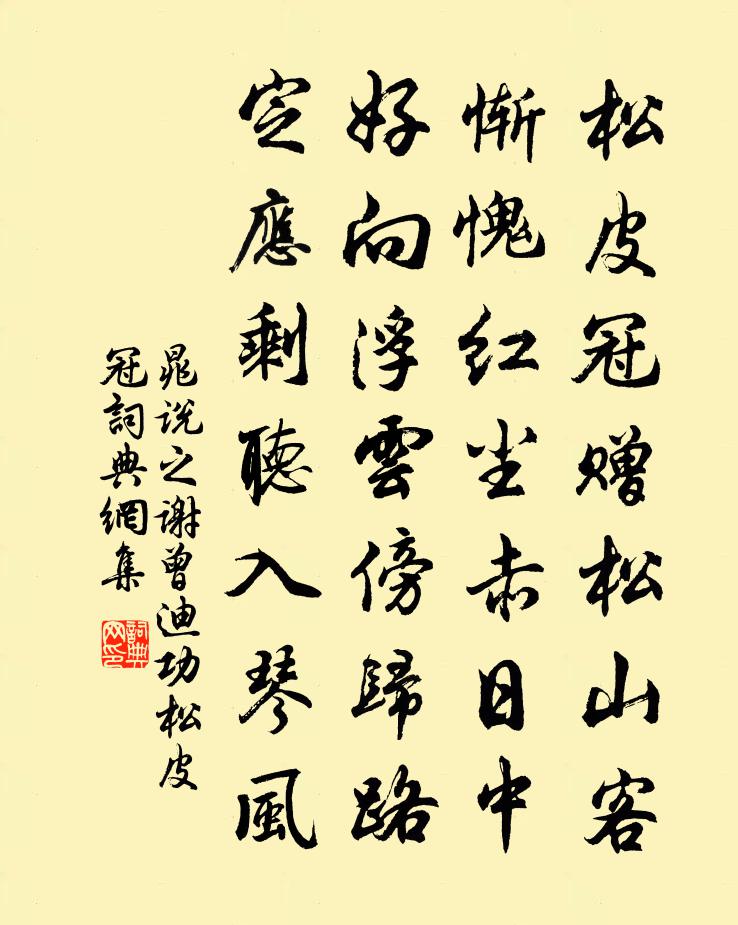 松皮冠赠松山客
惭愧红尘赤日中
好向浮雲傍歸路
定應剩聽入琴風
晁说之谢曾迪功松皮
冠詞典網集
詞典网印